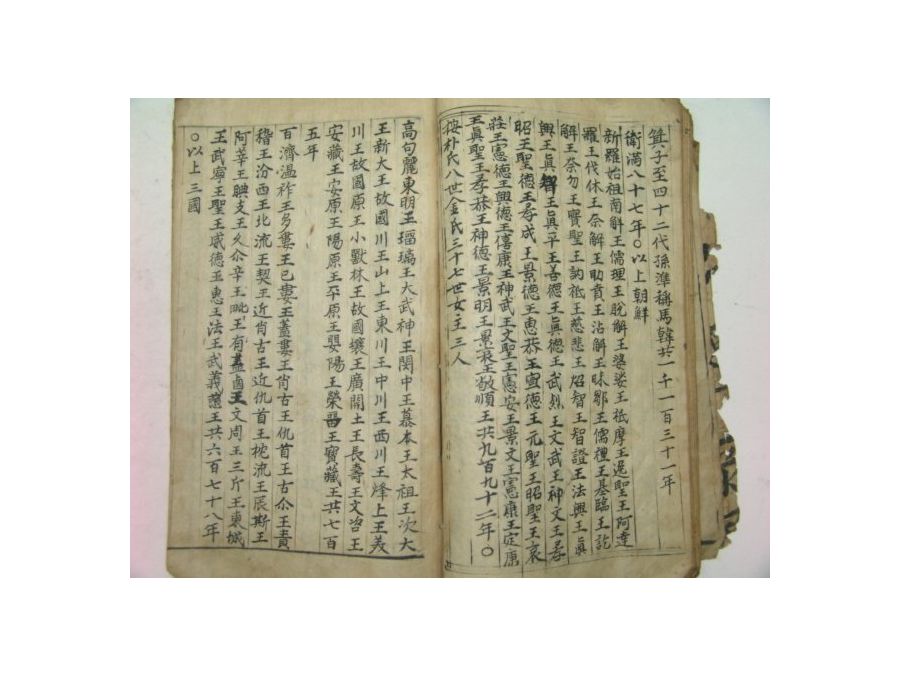 箕子至四十二代孫準稱馬韓共一千一百三十一年
衛滿八十七年○以上朝鮮
新羅始祖南解王儒理王脫解王婆娑王祗摩王逸聖王阿達
羅王伐休王奈解王助賁王沾解王味鄒王儒禮王基臨王訖
解王奈勿王實聖王訥祗王慈悲王炤智王智證王法興王眞
興王眞智王眞平王善德王眞德王武烈王文武王神文王孝
昭王聖德王孝成王景德王惠恭王宣德王元聖王昭聖王哀
莊王憲德王興德王僖康王神武王文聖王憲安王景文王憲康王定康
王眞聖王孝恭王神德王景明王景哀王敬順王共九百九十二年○
按朴氏八世金氏三十七世女主三人
高句麗東明王瑠璃王大武神王閔中王慕本王太祖王次大
王新大王故國川王山上王東川王中川王西川王烽上王美
川王故國原王小獸林王故國壤王廣開土王長壽王文咨王
安藏王安原王陽原王平原王嬰陽王榮留王寶藏王共七百
五年
百濟溫祚王多婁王已婁王蓋婁王肖古王仇首王古尒王責
稽王汾西王北流王契王近肖古王近仇首王枕流王辰斯王
阿莘王腆支王久尒辛王毗王有盖鹵王文周王三斤王東城
王武寧王聖王威德王惠王法王武義慈王共六百七十八年
○以上三國